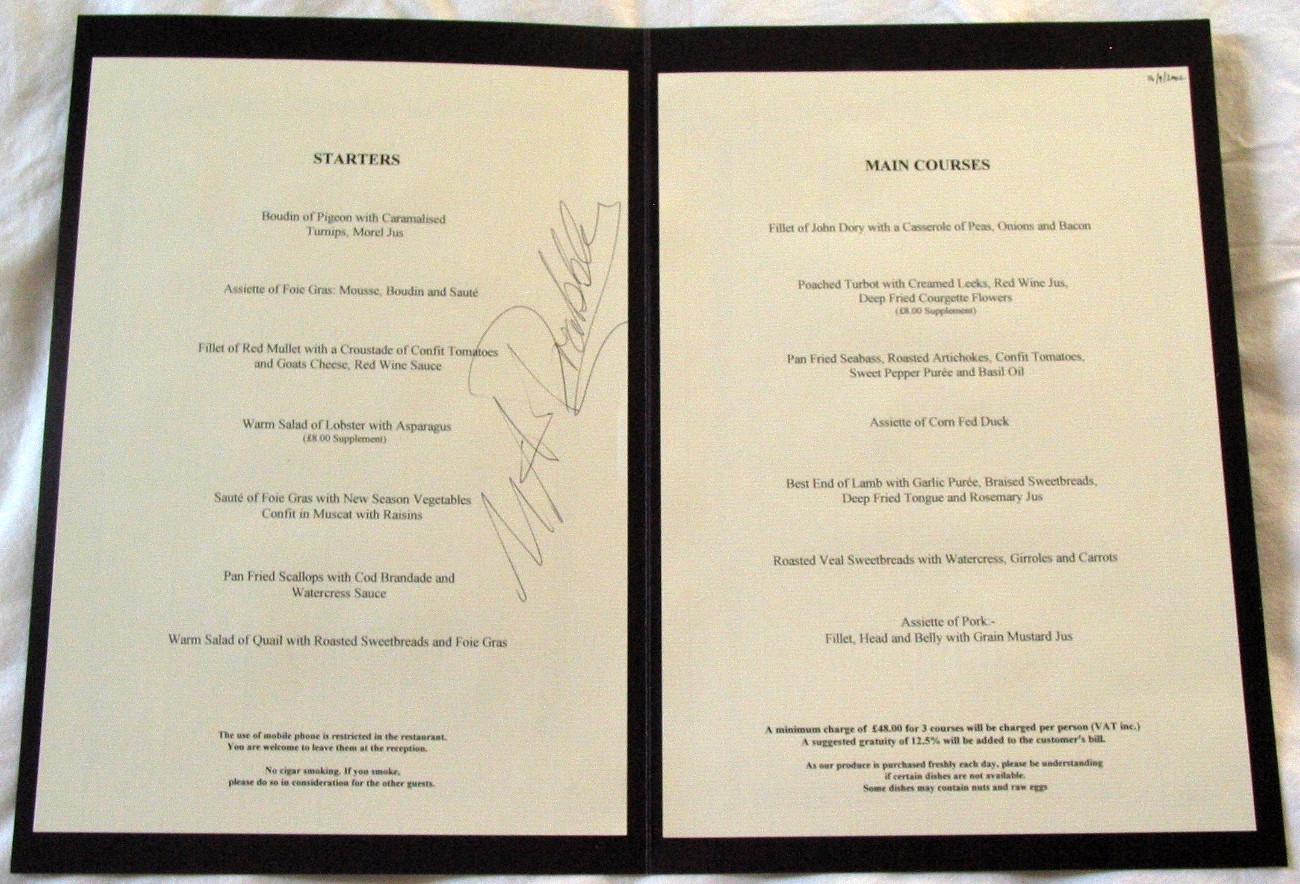 STARTERS
Boudin of Pigeon with Caramalised
Turnips, Morel Jus
Assiette of Foie Gras: Mousse, Boudin and Sauté
Fillet of Red Mullet with a Croustade of Confit Tomatoes
and Goats Cheese, Red Wine Sauce
Warm Salad of Lobster with Asparagus
(£8.00 Supplement)
Sauté of Foie Gras with New Season Vegetables
Confit in Muscat with Raisins
Pan Fried Scallops with Cod Brandade and
Watercress Sauce
Warm Salad of Quail with Roasted Sweetbreads and Foie Gras
The use of mobile phone is restricted in the restaurant.
You are welcome to leave them at the reception.
No cigar smoking. If you smoke,
please do so in consideration for the other guests.
MAIN COURSES
Fillet of John Dory with a Casserole of Peas, Onions and Bacon
Poached Turbot with Creamed Leeks, Red Wine Jus,
Deep Fried Courgette Flowers
(£8.00 Supplement)
Pan Fried Seabass, Roasted Artichokes, Confit Tomatoes,
Sweet Pepper Purée and Basil Oil
Assiette of Corn Fed Duck
Best End of Lamb with Garlic Purée, Braised Sweetbreads,
Deep Fried Tongue and Rosemary Jus
Roasted Veal Sweetbreads with Watercress, Girroles and Carrots
Assiette of Pork:-
Fillet, Head and Belly with Grain Mustard Jus
A minimum charge of £48.00 for 3 courses will be charged per person (VAT inc.)
A suggested gratuity of 12.5% will be added to the customer's bill.
As our produce is purchased freshly each day, please be understanding
if certain dishes are not available.
Some dishes may contain nuts and raw eggs